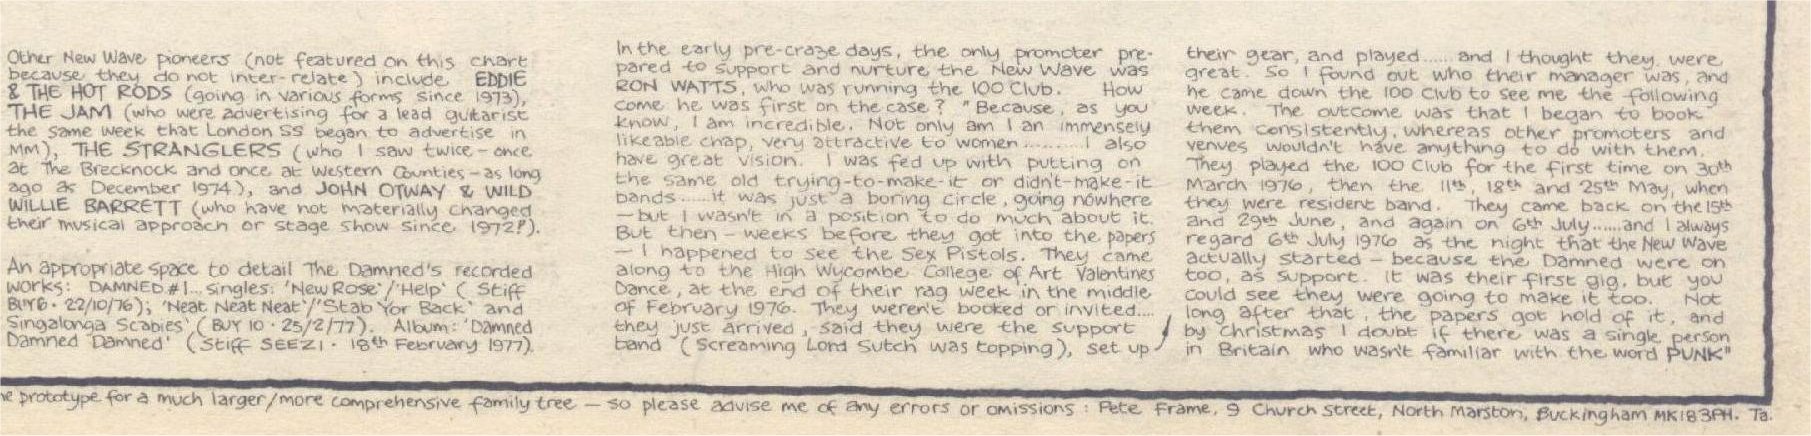 Other New Wave pioneers (not featured on this chart
because they do not inter-relate) include EDDIE
& THE HOT RODS (going in various forms since 1973),
THE JAM (who were advertising for a lead guitarist
the same week that London SS began to advertise in
MM), THE STRANGLERS (who I saw twice - once
at The Brecknock and once at Western Counties - as long
ago as December 1974), and JOHN OTWAY & WILD
WILLIE BARRETT (who have not materially changed
their musical approach or stage show since 1972?).
An appropriate space to detail The Damned's recorded
works: DAMNED #1... singles: 'New Rose'/'Help' (Stiff
BUY6 · 22/10/76); 'Neat Neat Neat'/'Stab Yor Back' and
Singalonga Scabies' (BUY 10 · 25/2/77). Album: 'Damned
Damned Damned' (Stiff SEEZ1 · 18th February 1977).
In the early pre-craze days, the only promoter pre-
pared to support and nurture the New Wave was
RON WATTS, who was running the 100 Club. How
come he was first on the case? "Because, as you
know, I am incredible. Not only am I an immensely
likeable chap, very attractive to women.......... I also
have great vision. I was fed up with putting on
the same old trying-to-make-it or didn't-make-it
bands......it was just a boring circle, going nowhere
- but I wasn't in a position to do much about it.
But then - weeks before they got into the papers
- I happened to see the Sex Pistols. They came
along to the High Wycombe College of Art Valentines
Dance, at the end of their rag week in the middle
of February 1976. They weren't booked or invited....
they just arrived, said they were the support
band (Screaming Lord Sutch was topping), set up
their gear, and played...... and I thought they were
great. So I found out who their manager was, and
he came down the 100 Club to see me the following
week. The outcome was that I began to book
them consistently, whereas other promoters and
venues wouldn't have anything to do with them.
They played the 100 Club for the first time on 30th
March 1976, then the 11th, 18th and 25th May, when
they were resident band. They came back on the 15th
and 29th June, and again on 6th July......and I always
regard 6th July 1976 as the night that the New Wave
actually started - because the Damned were on
too, as support. It was their first gig, but you
could see they were going to make it too. Not
long after that, the papers got hold of it, and
by Christmas I doubt if there was a single person
in Britain who wasn't familiar with the word PUNK"
prototype for a much larger/more comprehensive family tree - so please advise me of any errors or omissions: Pete Frame, 9 Church Street, North Marston, Buckingham MK18 3PH. Ta.